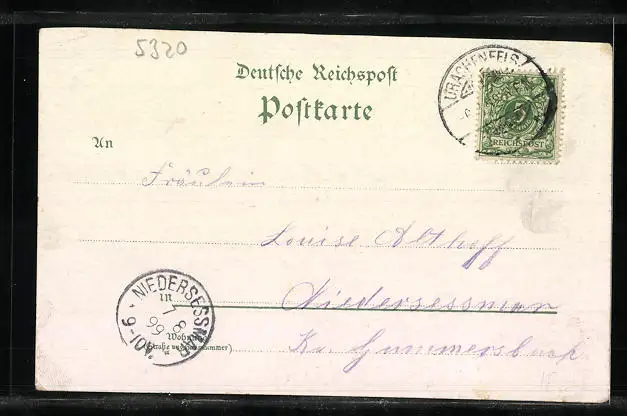 5320
Deutsche Reichspost
Postkarte
DRACHENFELS
5
REICHSPOST
An
Fräulein
Louise Althoff
NIEDERSESSMAR
in
7 8 99
9-10V.
Niedersessmar
Wohnung
(Straße und Hausnummer)
Kr. Gummersbach